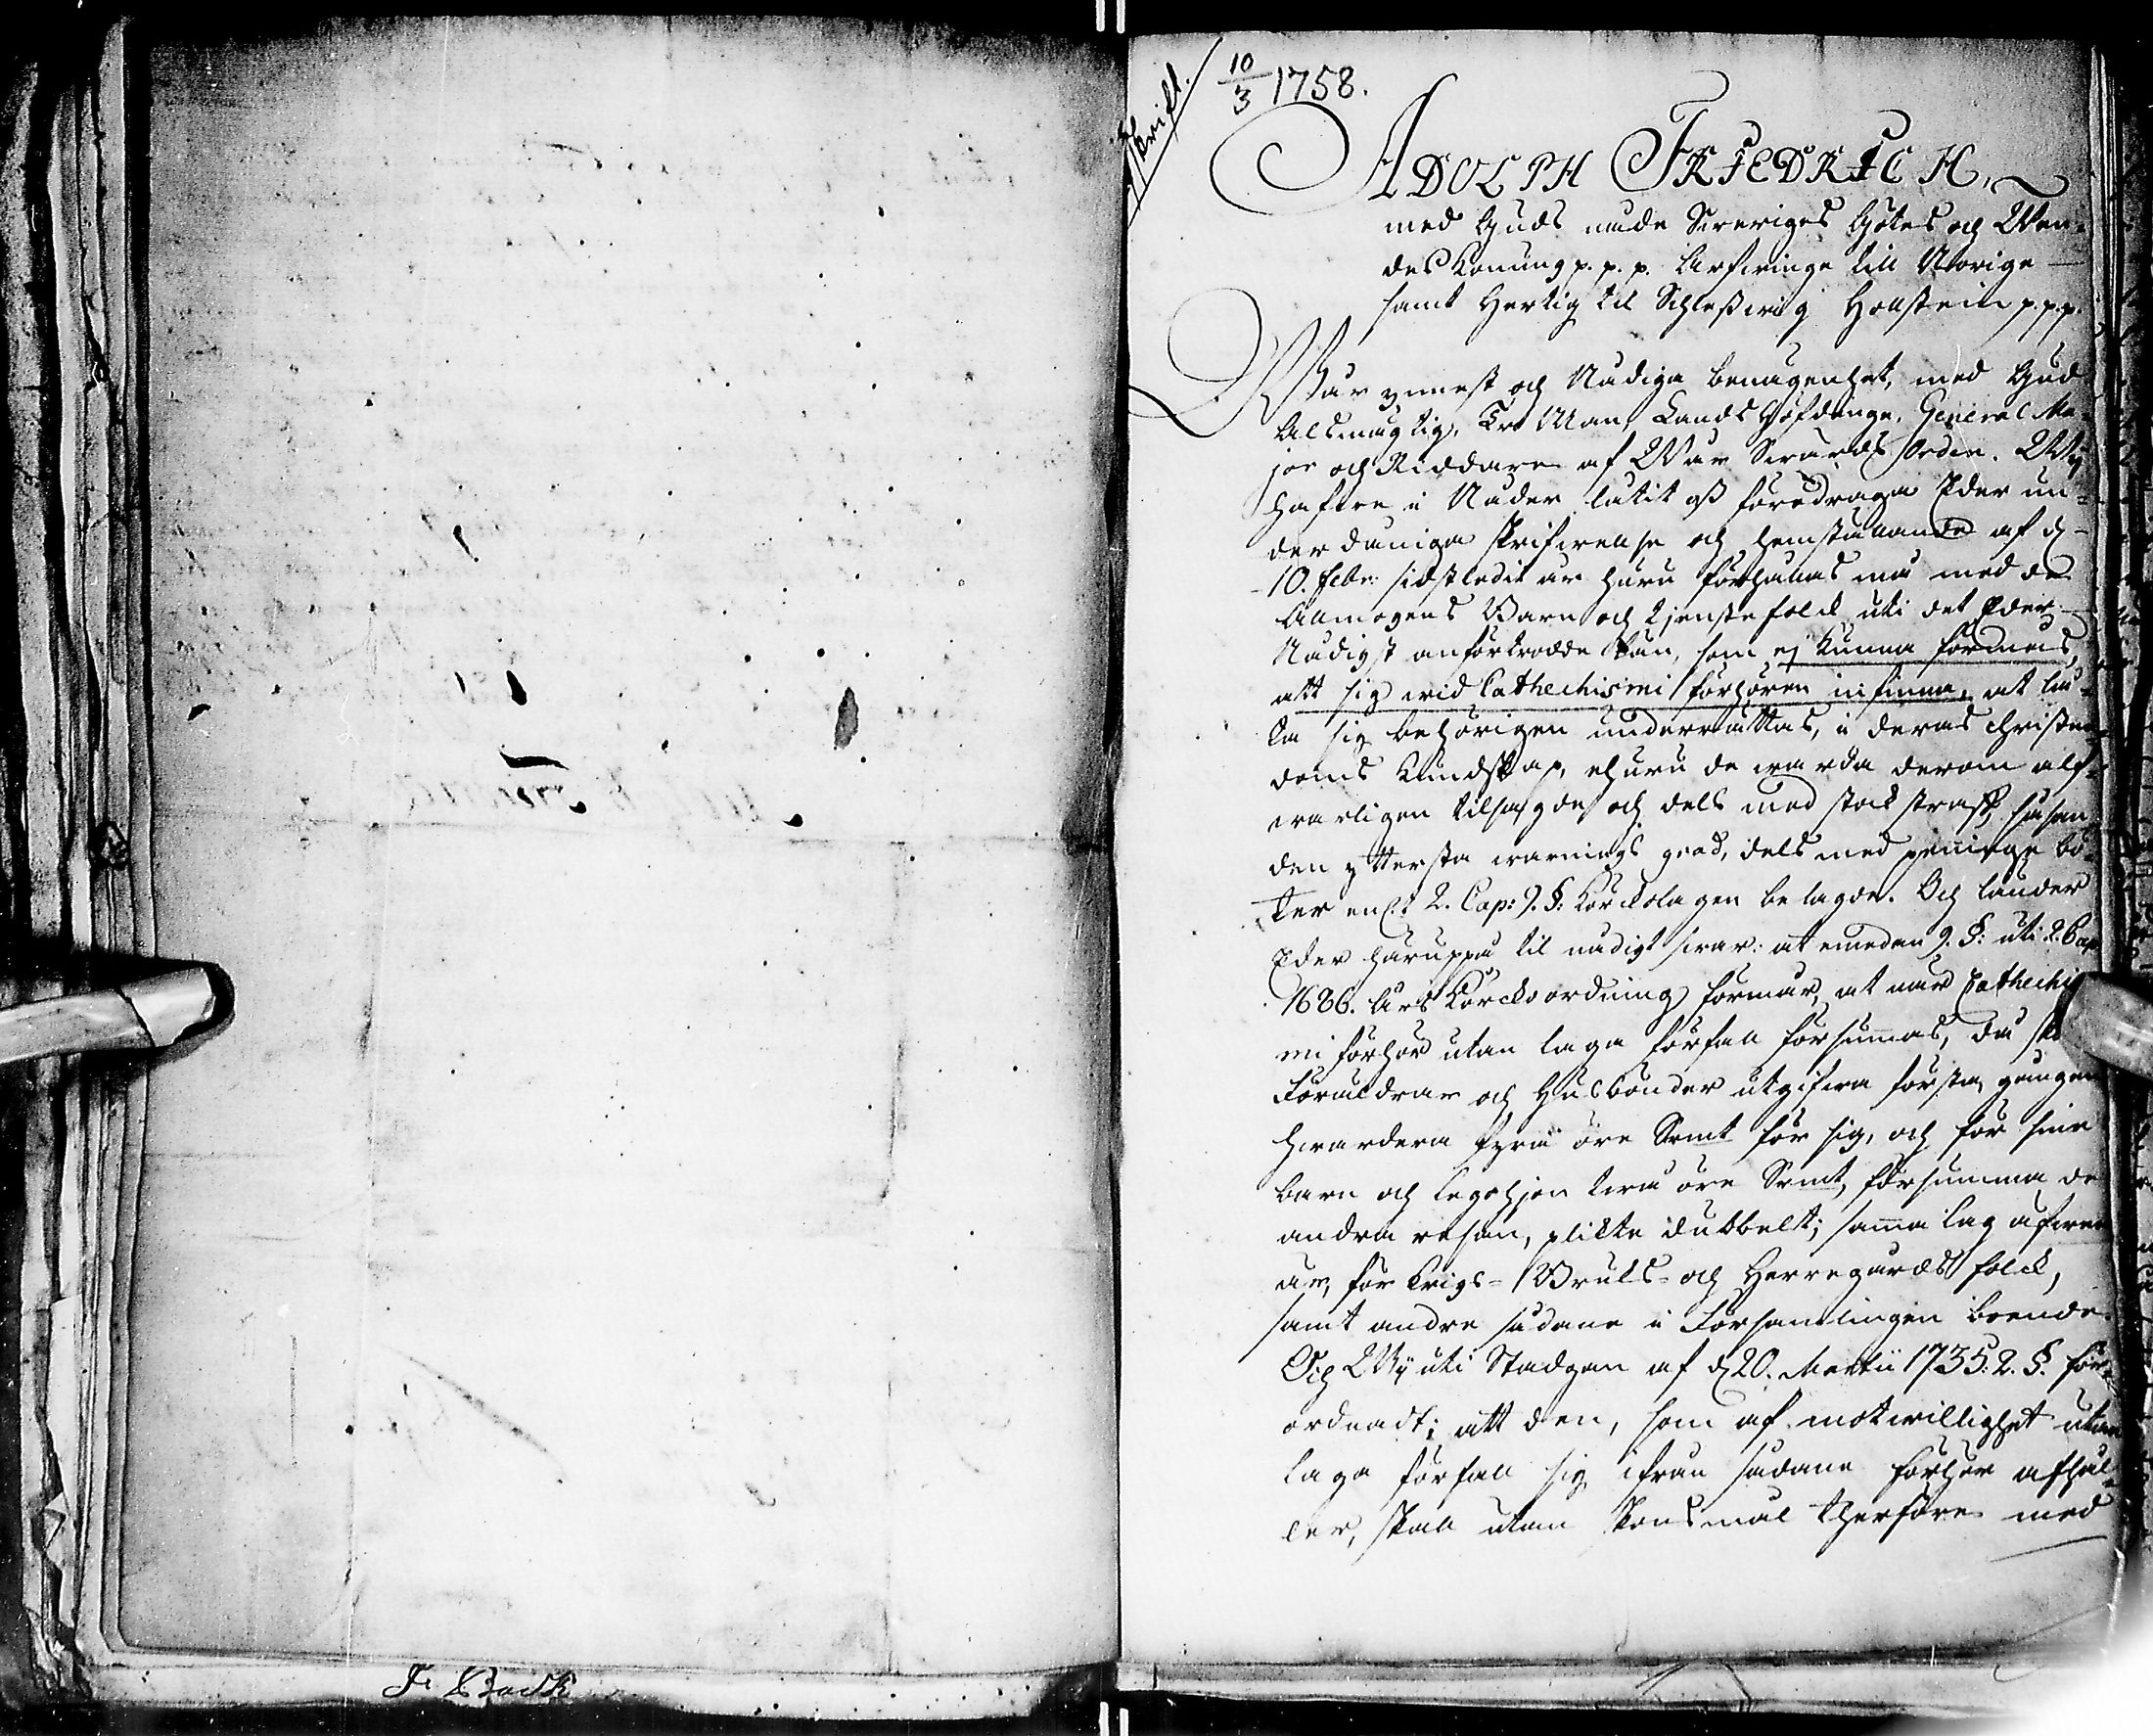 10/3 1758.
Afskrift.
ADOLPH FRIEDRICH,
med Guds nåde Sweriges Göthes och Wen-
des Konung p. p. p. Arfwinge till Norige
samt Hertig til Schleßwig Hollstein p.p.p.
Wår ynnest och Nådiga benägenhet, med Gud
Alsmägtig, Tro Man Lands Höfdinge, General Ma-
jor och Riddare af Wår Swärds Orden. Wij
hafwe i Nåder låtit oß föredraga Eder un-
derdåniga skrifwelse och hemställande af d
10. Febr: sidstledit om huru förhållas må med de
Allmogens Barn och tjenstefolck uti det Eder
Nådigst anförtrodde Län, som ej kunna förmås,
att sig wid Cathechismi förhören infinna, at lå-
ta sig behörigen underrättas, i deras christen-
doms kundskap, ehuru de warda derom alf-
warligen tilsagde och dels med stock straff, såsom
den yttersta warnings grad, dels med penninge bö-
ter enl:t 2. Cap: 9. §: Körckolagen belagde. Och länder
Eder häruppå til nådigt swar: at emedan 9. §: uti 2. Cap
1686. Års Körckoordning förmår, at när Cathechis
mi förhör utan laga förfall försummas, då sk
Föräldrar och Husbönder utgifwa första gången
hwardera fyra öre Srmt för sig, och för sine
barn och legohjon twå öre Srmt, försumma de
andra resan, plickte dubbelt; samma lag äfwen
är, för Krigs- Bruks- och Herregårds folck,
samt andre sådane i Församlingen boende.
Och Wij uti Stadgan af d 20. Martii 1735: 2. §. för-
ordnadt; att den, som af motwillighet utan
laga förfall sig ifrån sådane förhör afhål-
ler, skall utan skonsmål therföre med
J. Back